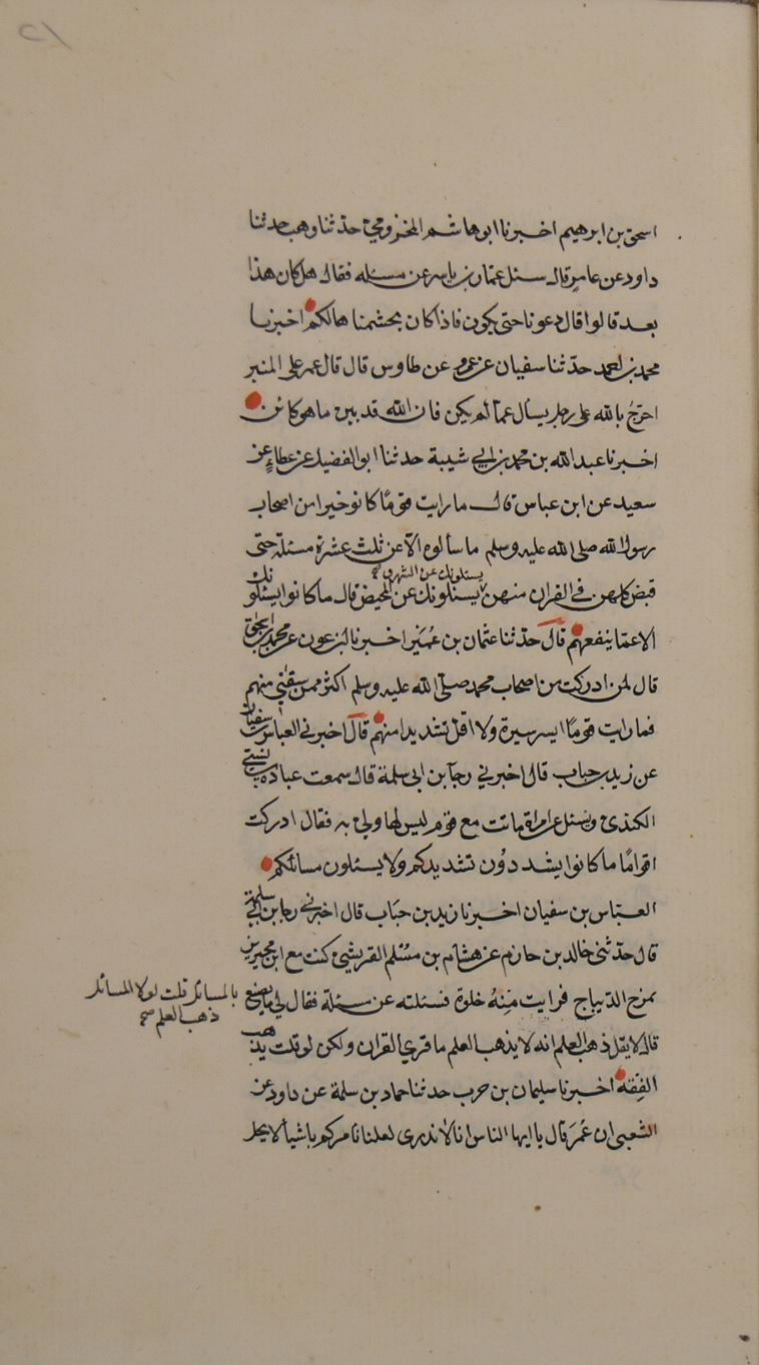 اسحق بن ابرهيم اخبرنا ابو هاشم المخزومي حدثنا وهب حدثنا
داود عن عامر قال سئل عمار بن ياسر عن مسئله فقال هل كان هذا
بعد قالوا لا قال دعونا حتى يكون فاذا كان تجشمناها لكم اخبرنا
محمد بن احمد حدثنا سفيان عن عمرو عن طاوس قال قال عمر على المنبر
احرج بالله على رجل يسأل عما لم يكن فان الله قد بين ما هو كائن
اخبرنا عبد الله بن محمد بن ابي شيبة حدثنا ابو الفضيل عن عطاء عن
سعيد عن ابن عباس قال ما رايت قومًا كانو خيرا من اصحاب
رسول الله صلى الله عليه وسلم ما سألوه الا عن ثلث عشرة مسئلة حتى
يسئلونك عن الشهر
قبض كلهن في القران منهن يسئلونك عن المحيض قال ما كانوا يسئلونك
الا عما ينفعهم قال حدثنا عثمان بن عمير اخبرنا ابن عون عن محمد بن اسحق
قال لمن ادركت من اصحاب محمد صلى الله عليه وسلم اكثر ممن سبقني منهم
فما رايت قومًا ايسر سيرة ولا اقل تشديدا منهم قال اخبرني العباس بن سفيان
عن زيد بن حباب قال اخبرني رجآ بن ابي سلمة قال سمعت عبادة بن نسي
الكندي وسئل عن امراة ماتت مع قوم ليس لها ولي به فقال ادركت
اقوامًا ما كانوا يشددون تشديدكم ولا يسئلون مسائلكم
العباس بن سفيان اخبرنا زيد بن حباب قال اخبرني رجا بن ابي سلمة
قال حدثنى خالد بن حازم عن هشام بن مسلم القريشي كنت مع ابن محيريز
بمرج الديباج فرايت منه خلوة فسئلته عن مسئلة فقال لي ما يصنع
بالمسائل قلت لولا المسائل
ذهب العلم صح
قال لا يقل ذهب العلم انه لا يذهب العلم ما قري القران ولكن لو قلت يذهب
الفقه اخبرنا سليمان بن حرب حدثنا حماد بن سلمة عن داود عن
الشعبي ان عمر قال يا ايها الناس انا لا ندرى لعلنا نامركم باشيا لا يحل